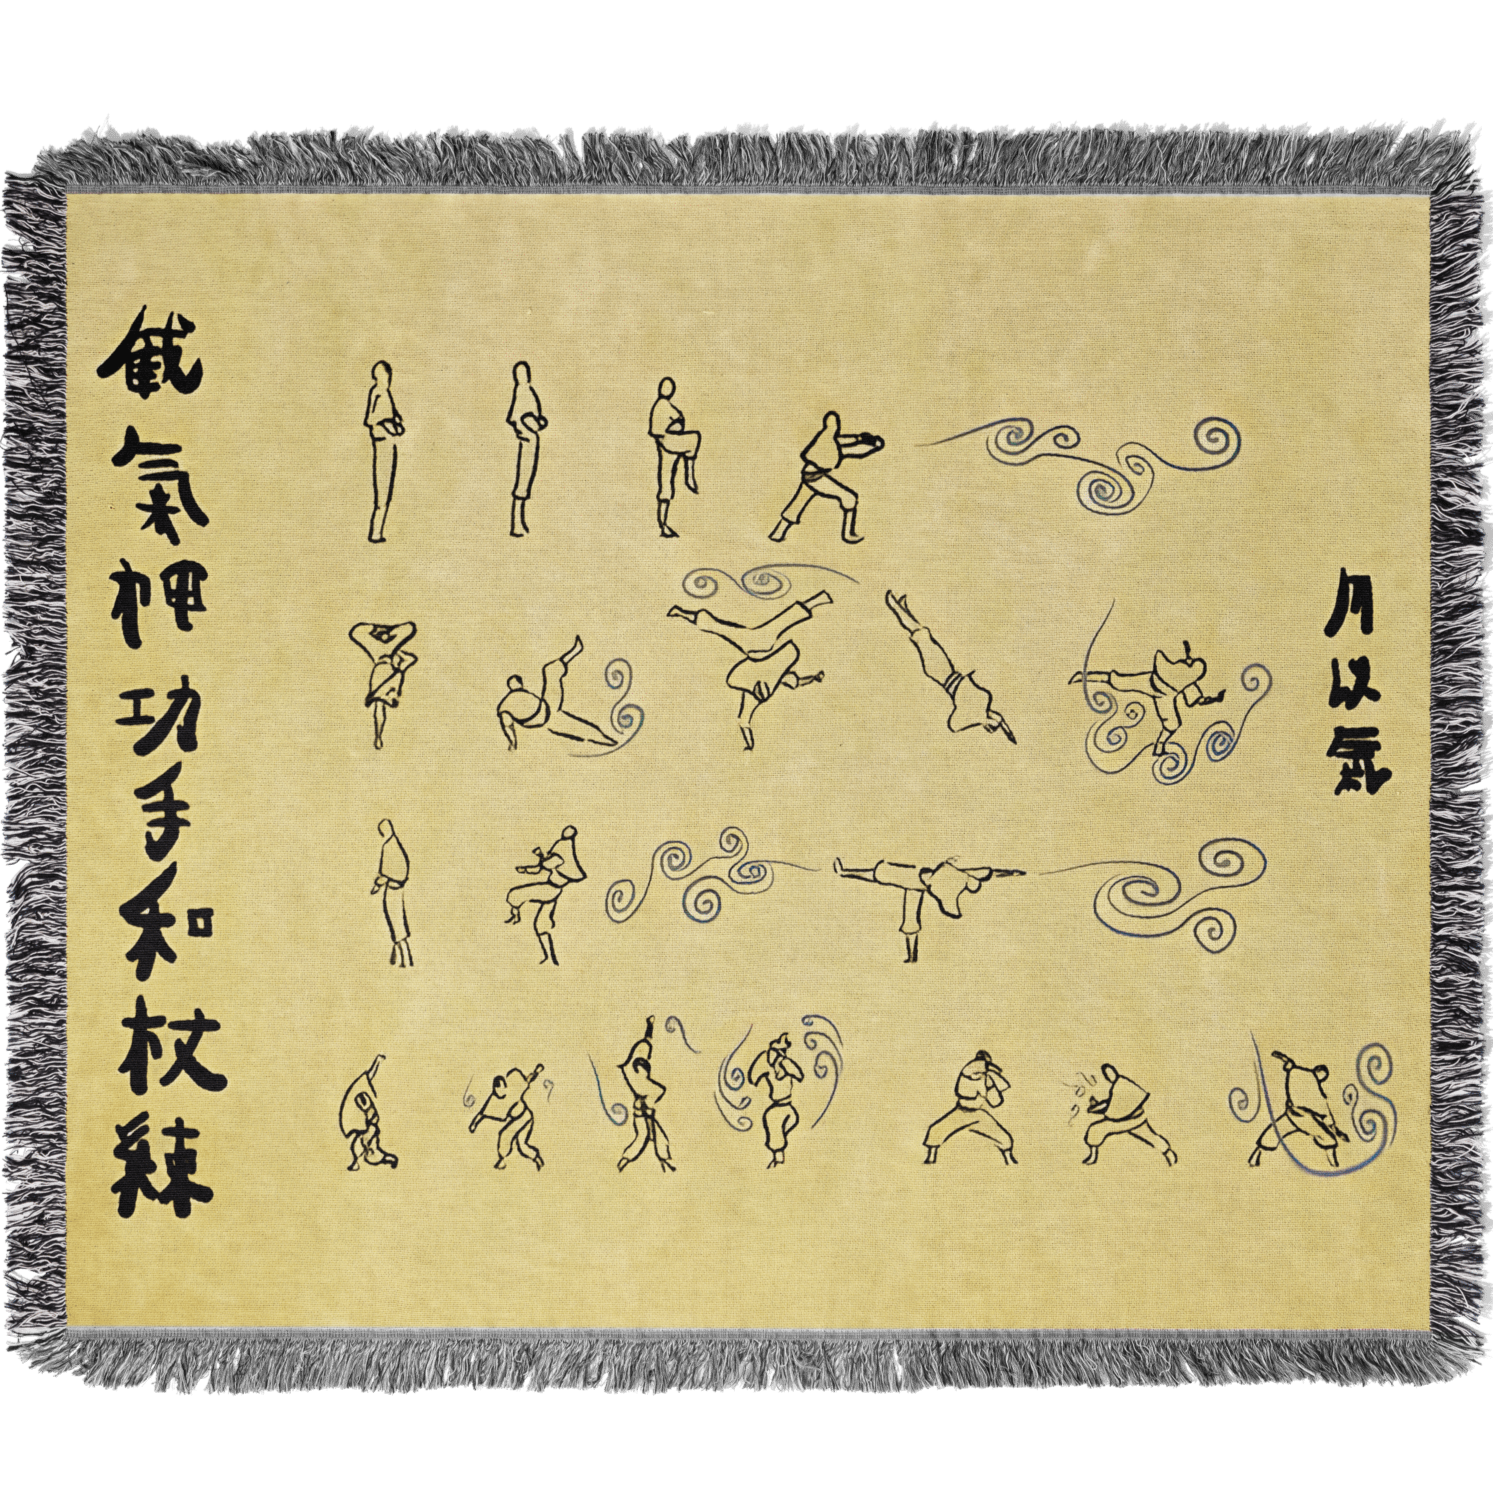 月以氣
截氣柙功手和杖練